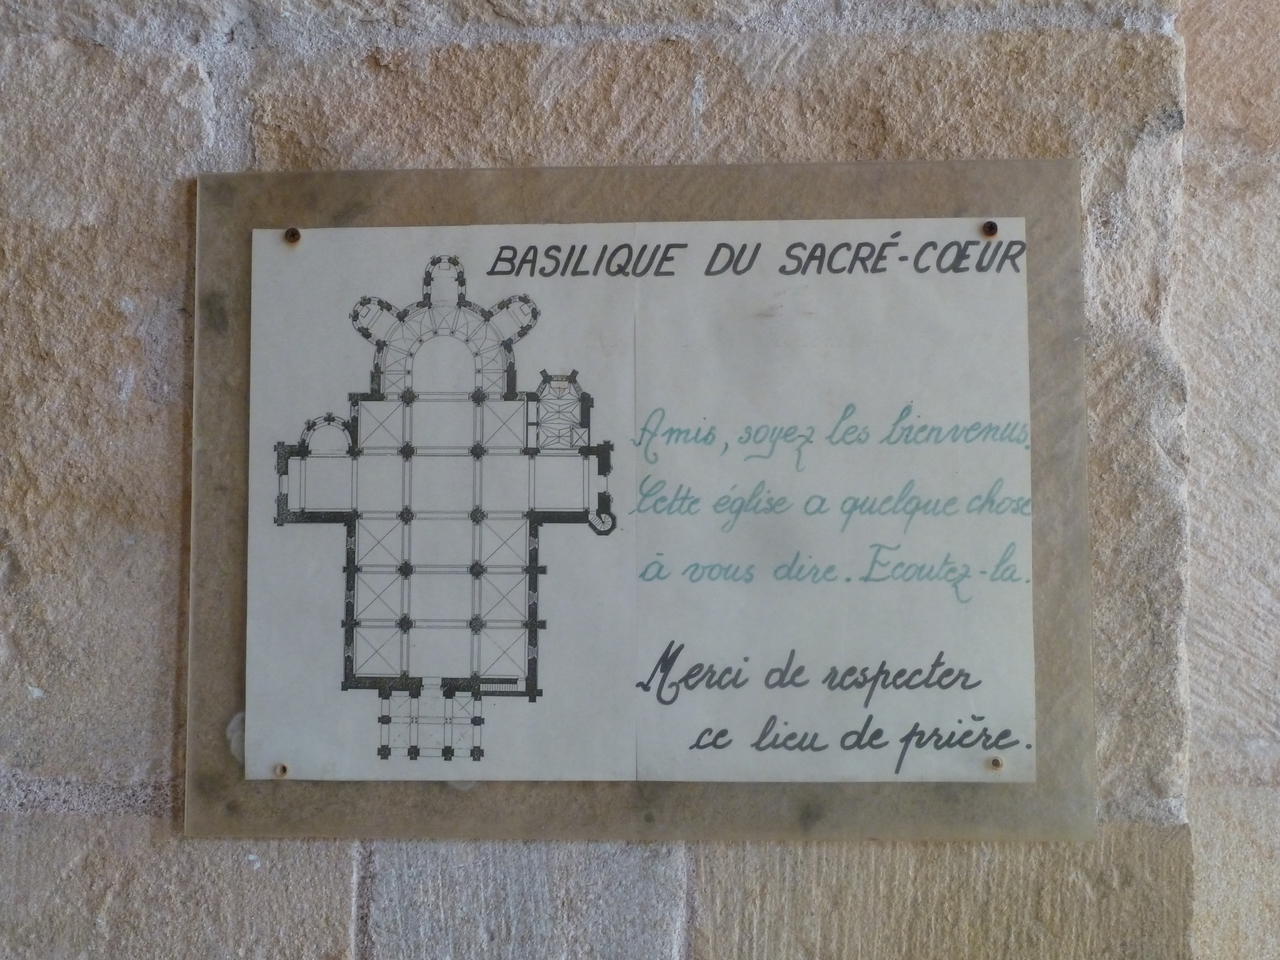 BASILIQUE DU SACRÉ-CŒUR
Amis, soyez les bienvenus.
Cette église a quelque chose
à vous dire. Ecoutez-la.
Merci de respecter
ce lieu de prière.